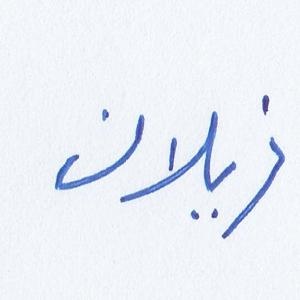 زیلان